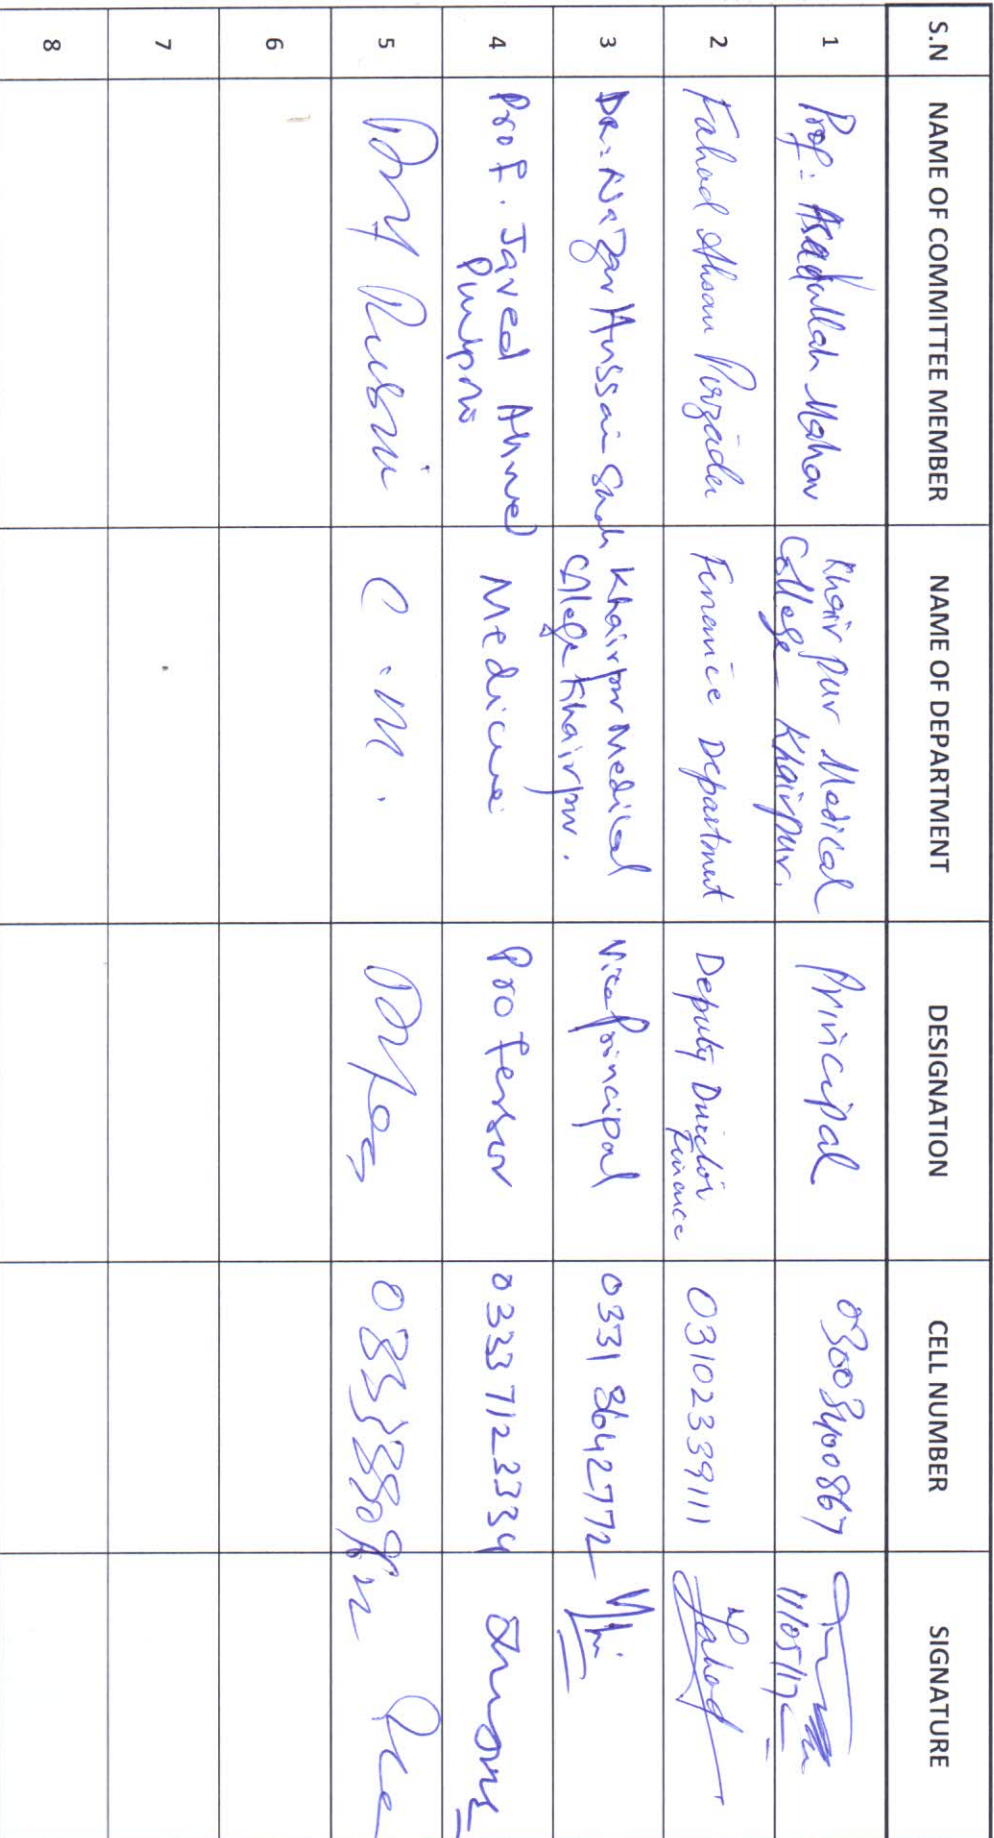 S.N NAME OF COMMITTEE MEMBER NAME OF DEPARTMENT DESIGNATION CELL NUMBER SIGNATURE
1 Prof: Asadullah Mahar Khairpur Medical College Khairpur. Principal 03003400867 11/05/17
2 Fahad Ahsan Pirzada Finance Department Deputy Director Finance 03102339111 Fahad
3 Dr: Nazar Hussain Shah Khairpur Medical College Khairpur. Vice Principal 0331 3642772
4 Prof. Javed Ahmed Medicine Professor 0333 7123334
5 C.M.
6
7
8